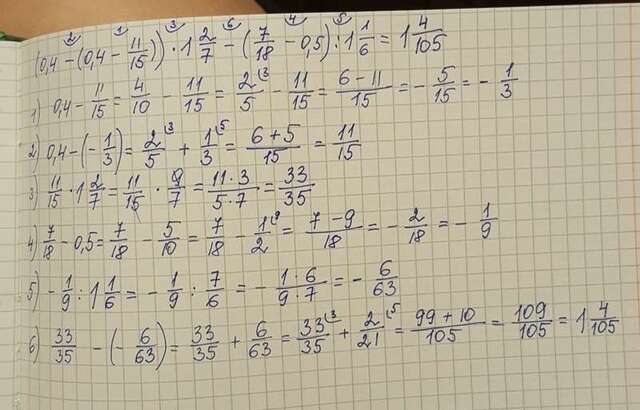 (0,4 - (0,4 - 11/15)) · 1 2/7 - (7/18 - 0,5) : 1 1/6 = 1 4/105
1) 0,4 - 11/15 = 4/10 - 11/15 = 2/5 - 11/15 = (6 - 11)/15 = - 5/15 = - 1/3
2) 0,4 - (- 1/3) = 2/5 + 1/3 = (6 + 5)/15 = 11/15
3) 11/15 · 1 2/7 = 11/15 · 9/7 = (11 · 3)/(5 · 7) = 33/35
4) 7/18 - 0,5 = 7/18 - 5/10 = 7/18 - 1/2 = (7 - 9)/18 = - 2/18 = - 1/9
5) - 1/9 : 1 1/6 = - 1/9 : 7/6 = - (1 · 6)/(9 · 7) = - 6/63
6) 33/35 - (- 6/63) = 33/35 + 6/63 = 33/35 + 2/21 = (99 + 10)/105 = 109/105 = 1 4/105